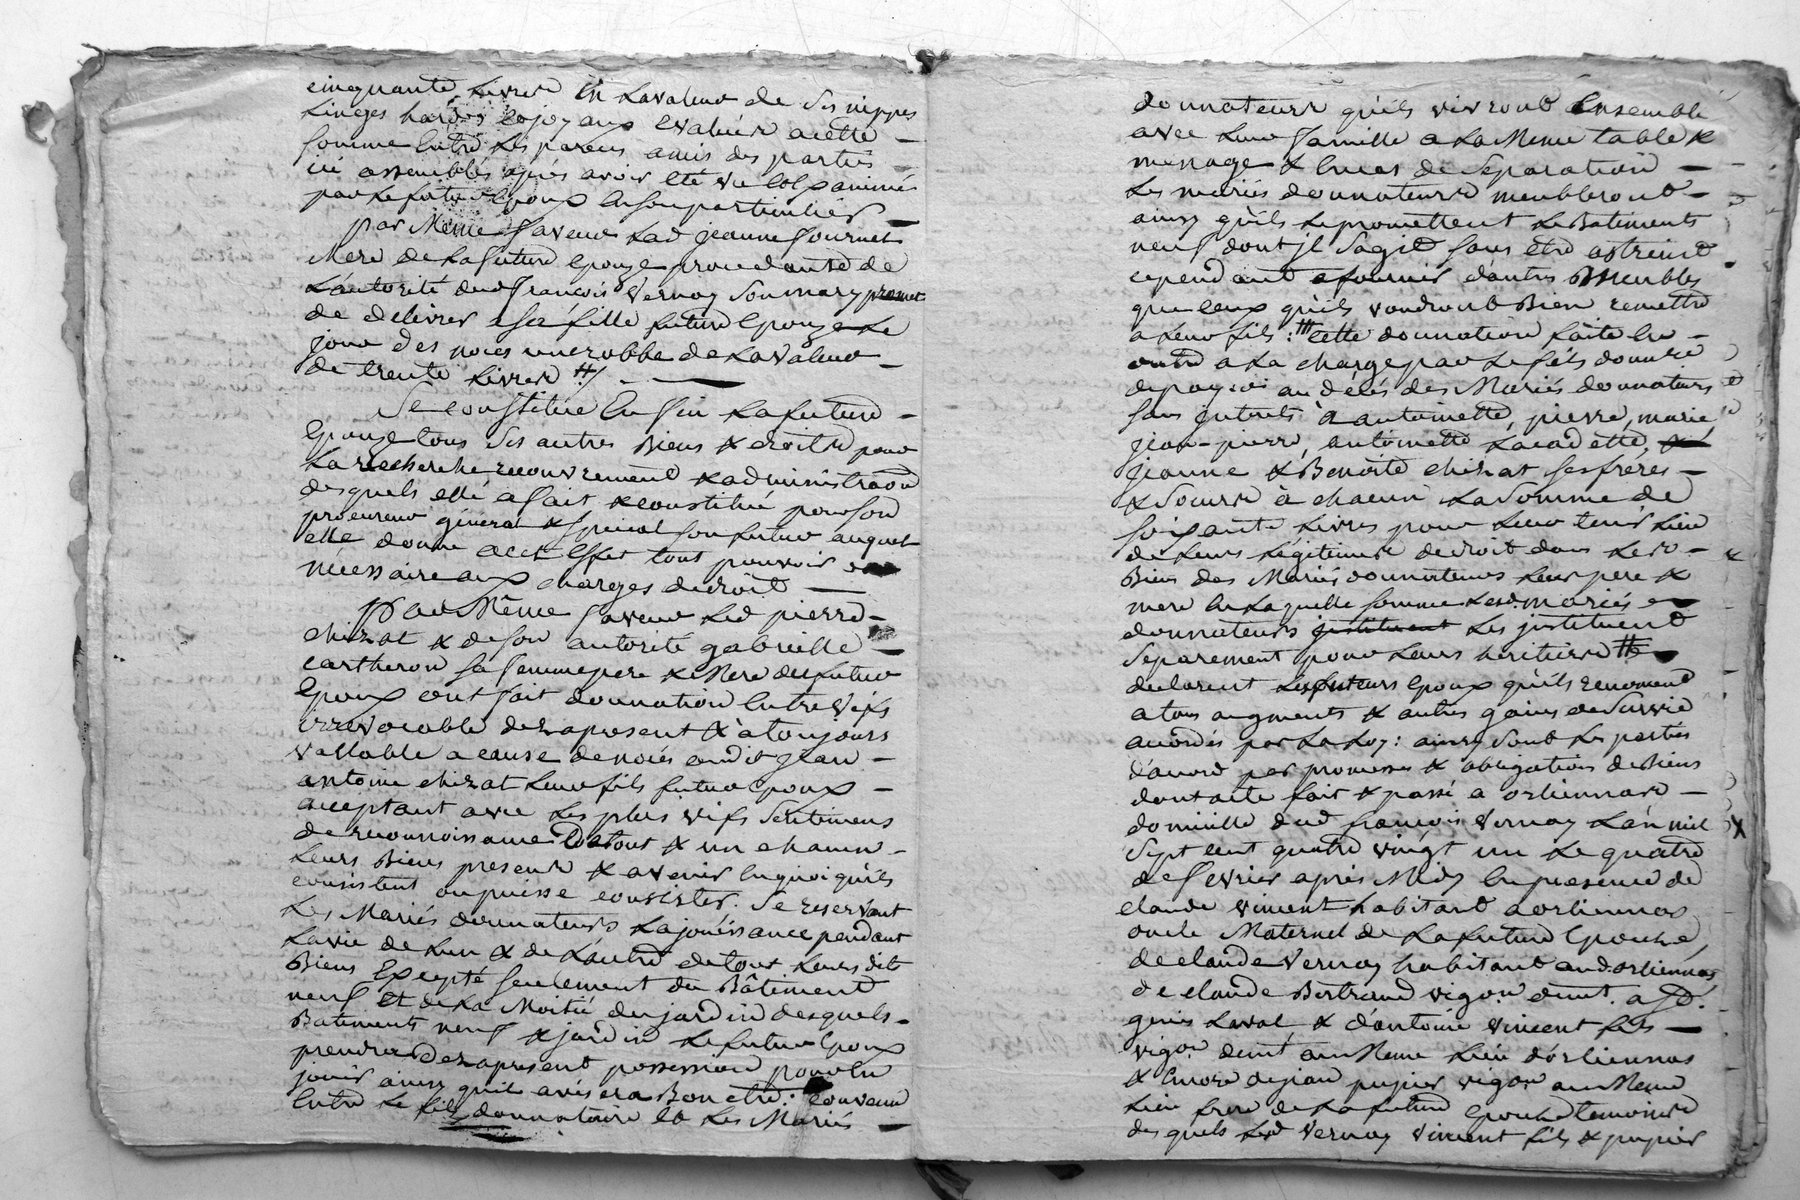 cinquante Livres En Lavaleur de ses nippes
Linges hardes et joyaux Evalués a cette
somme Entre les parens amis des parties
icé assemblés apres avoir Eté vu Et Examiné
par Le futur Epoux En son particulier
par Meme faveur Lad jeanne fournel
Mere de La future Epouze procedante de
L'autorité dud françois Vernay son mary promet
de delivrer a sa fille future Epouze Le
jour des noces une robbe de La Valeur
de trente Livres //
Se constitue Enfin La future
Epouze tous ses autres Biens & droits pour
La recherche recouvrement & administraon
desquels elle a fait & constitué pour son
procureur général & special son futur auquel
elle donne a cet Effet tout pouvoir
nécessaire aux charges de droit
Par Même faveur Led pierre
chizat & de son autorité gabrielle
cartheron sa femme pere & Mere du futur
Epoux ont fait donnation Entre Vifs
irrevocable dez apresent & à toujours
vallable a cause de noces audit jean
antoine chizat Leur fils futur Epoux
acceptant avec Les plus vifs sentimens
de reconnoissance De tout & un chacun
Leurs Biens presens & avenir En quoi qu'ils
consistent ou puisse consister. Se reservant
Les Mariés donnateurs La jouissance pendant
La vie de L'un & de L'autre de tous Leurs dits
Biens Excepté seulement du Bâtiment
neuf Et de La Moitié du jardin desquels
Batiments neuf & jardin Le futur Epoux
prendra dez apresent possession pour En
jouir ainsy qu'il avisera Bon etre: Convenu
Entre Le fils donnataire Et Les Mariés
donnateurs qu'ils vivront Ensemble
avec Leur famille a La Meme table &
menage & En cas de Separation
Les mariés donnateurs meubleront
ainsy qu'ils Le promettent Le Batiments
neuf dont jl Sagit sans être astreint
cependant a fournir d'autres Meubles
que Ceux qu'ils voudront Bien remettre
a Leur fils: cette donnation faite En
outre a La charge par Le fils donnaire
de payer au decés des Mariés donnateurs
sans jnterets à antoinette, pierre, marie,
jean-pierre, antoinette La cadette, &
jeanne & Benoite chizat ses freres
& Soeurs à chacun La Somme de
soixante Livres pour Leur tenir Lieu
de Leurs Légitimes de droit dans Les
Biens des Mariés donnateurs Leurs pere &
mere En Laquelle somme Lesd. mariés
donnateurs Les jnstituent
Separement pour Leurs heritiers //
declarent Les futurs Epoux qu'ils renoncent
a tous augments & autres gains de Survie
acordés par La Loy: ainsy sont Les parties
d'acord par promesses & obligations de Biens
dont acte fait & passé a orliennas
domicille dud françois Vernay L'an mil
Sept cent quatre vingt un Le quatre
de fevrier après Midy En presence de
claude vincent habitant a orliennas
oncle Maternel de La future Epouze,
de claude Vernay habitant aud. orliennas
de claude Bertrand vigon demt. a St.
genis Laval & d'antoine vincent fils
vigon demt au Meme Lieu d'orliennas
& Encore de jean pupier vigon au Meme
Lieu frere de La future Epouze temoins
des quels Led Vernay Vincent fils & pupier